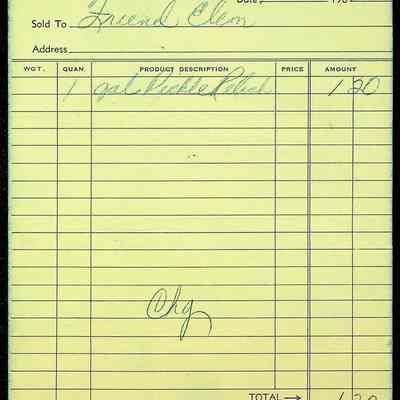 Date 196
Sold To Friend Clem
Address
WGT. QUAN. PRODUCT DESCRIPTION PRICE AMOUNT
1 gal Pickle Relish 1 20
Chg
TOTAL → 1 20